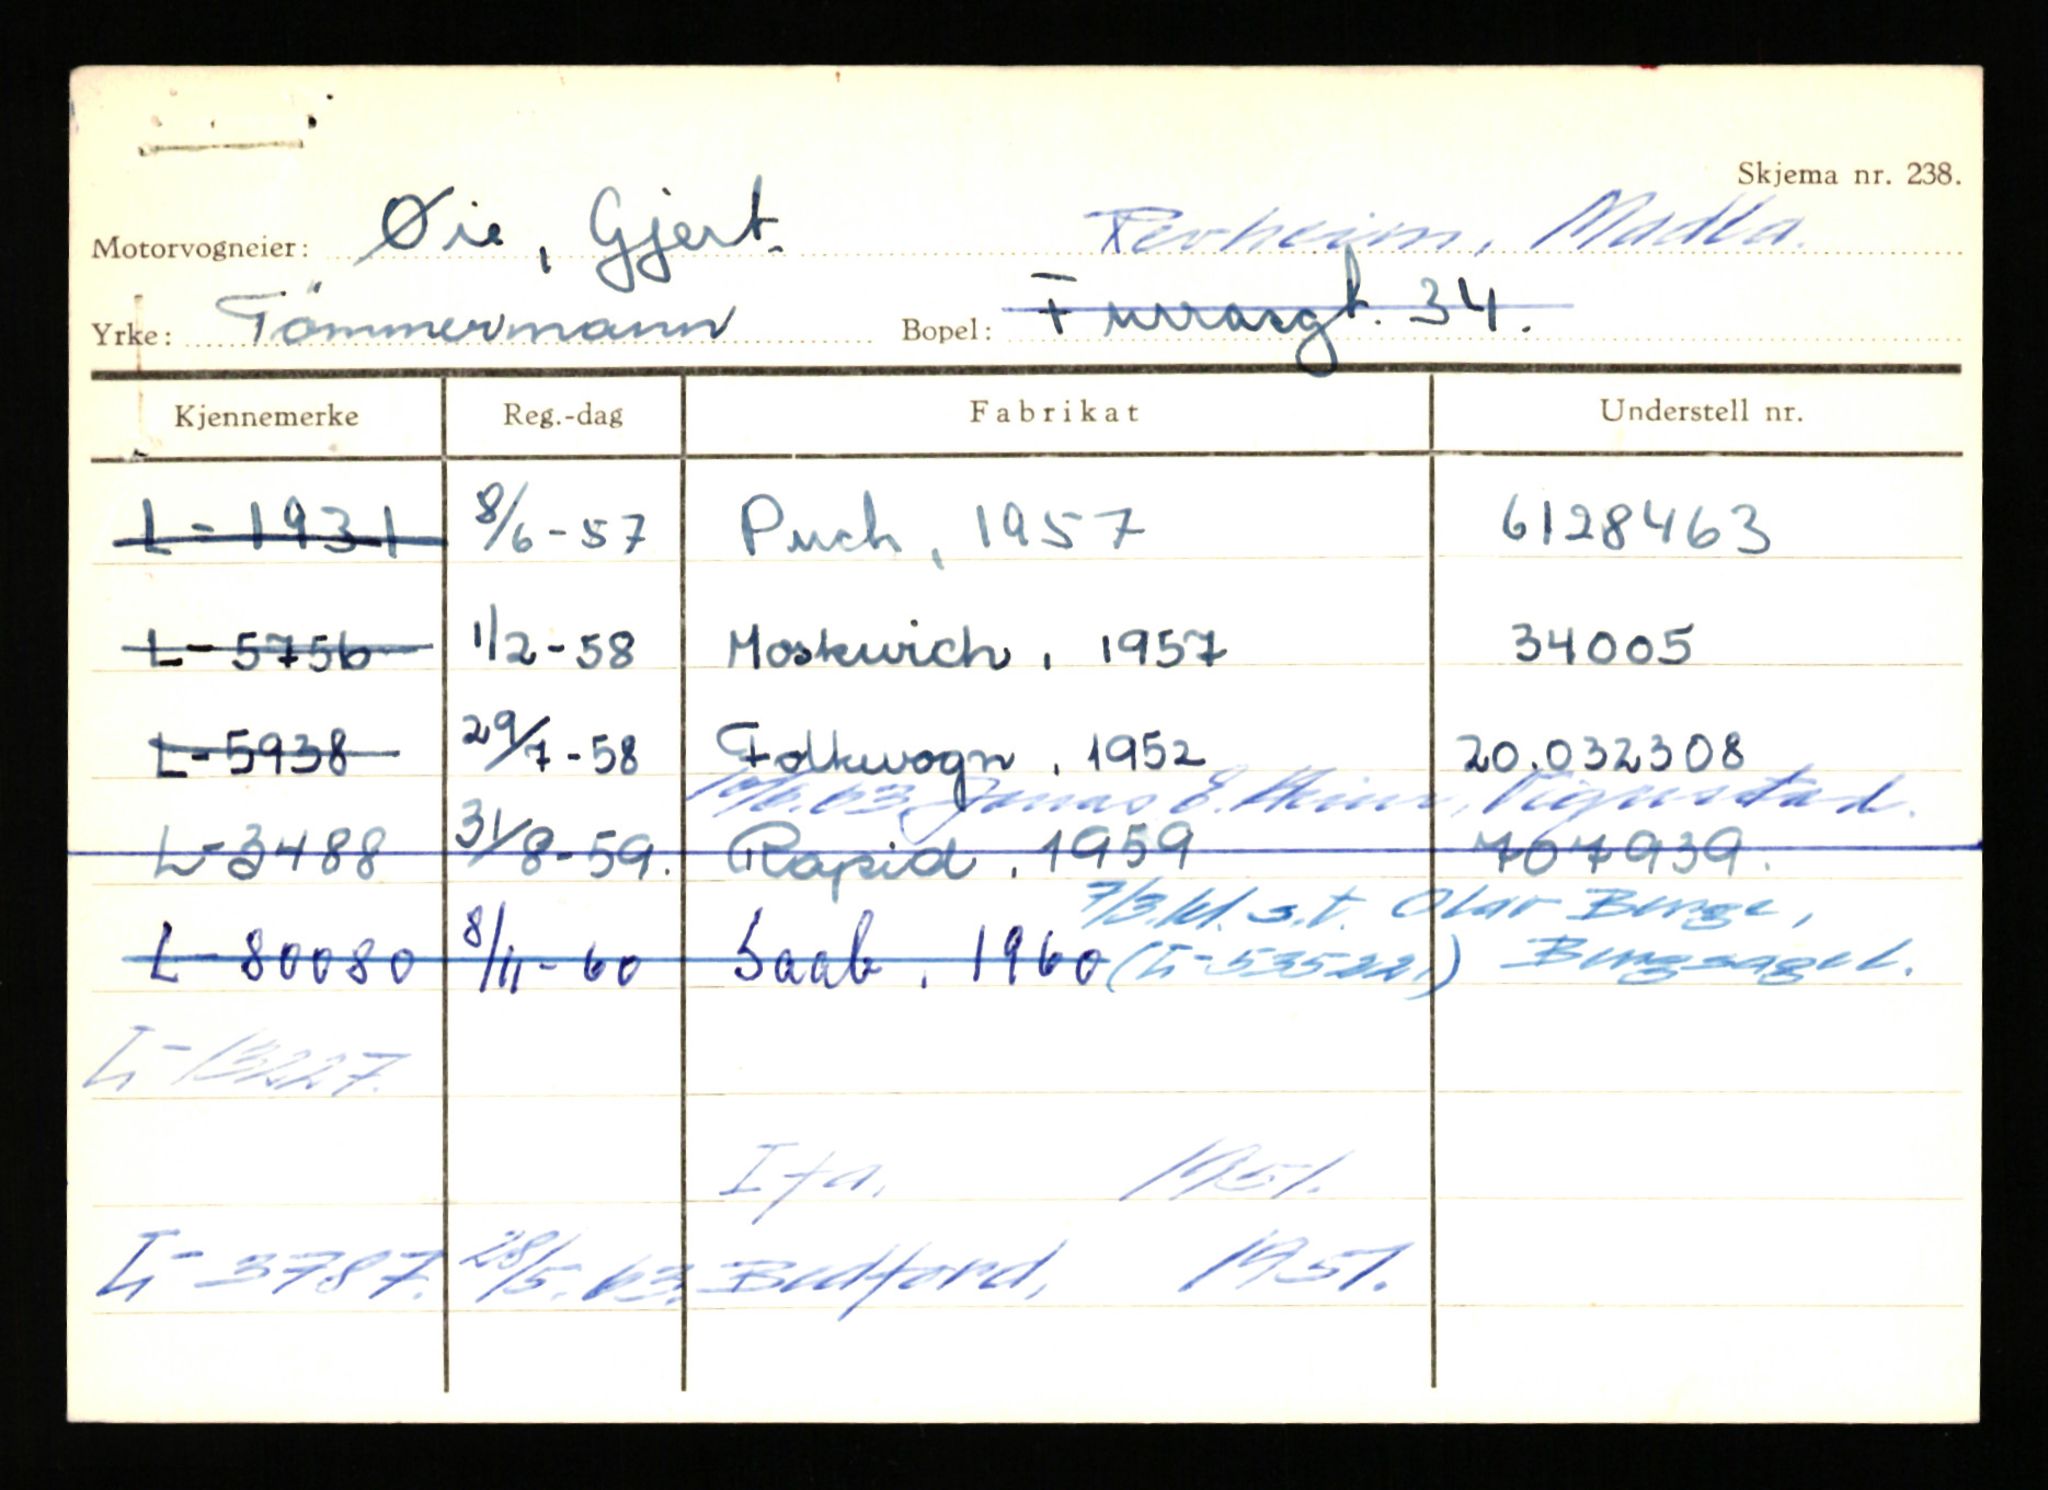 Skjema nr. 238.
Motorvogneier: Øie, Gjert. Revheim, Madla.
Yrke: Tömmermann Bopel: Furrasgt. 34.
Kjennemerke Reg.-dag Fabrikat Understell nr.
L-1931 8/6-57 Puch, 1957 6128463
L-5756 1/2-58 Moskwich, 1957 34005
L-5938 29/7-58 Folkvogn, 1952 20.032308
63 Jonas E. Vigrestad.
L-3488 31/8-59. Rapid, 1959 707939.
7/3.61. s.t. Olav Berge,
L-80080 8/11-60 Saab, 1960 (L-53522.) Bergsagel.
L-13227.
Ifa. 1951.
L-3787. 28/5.63. Bedford, 1951.